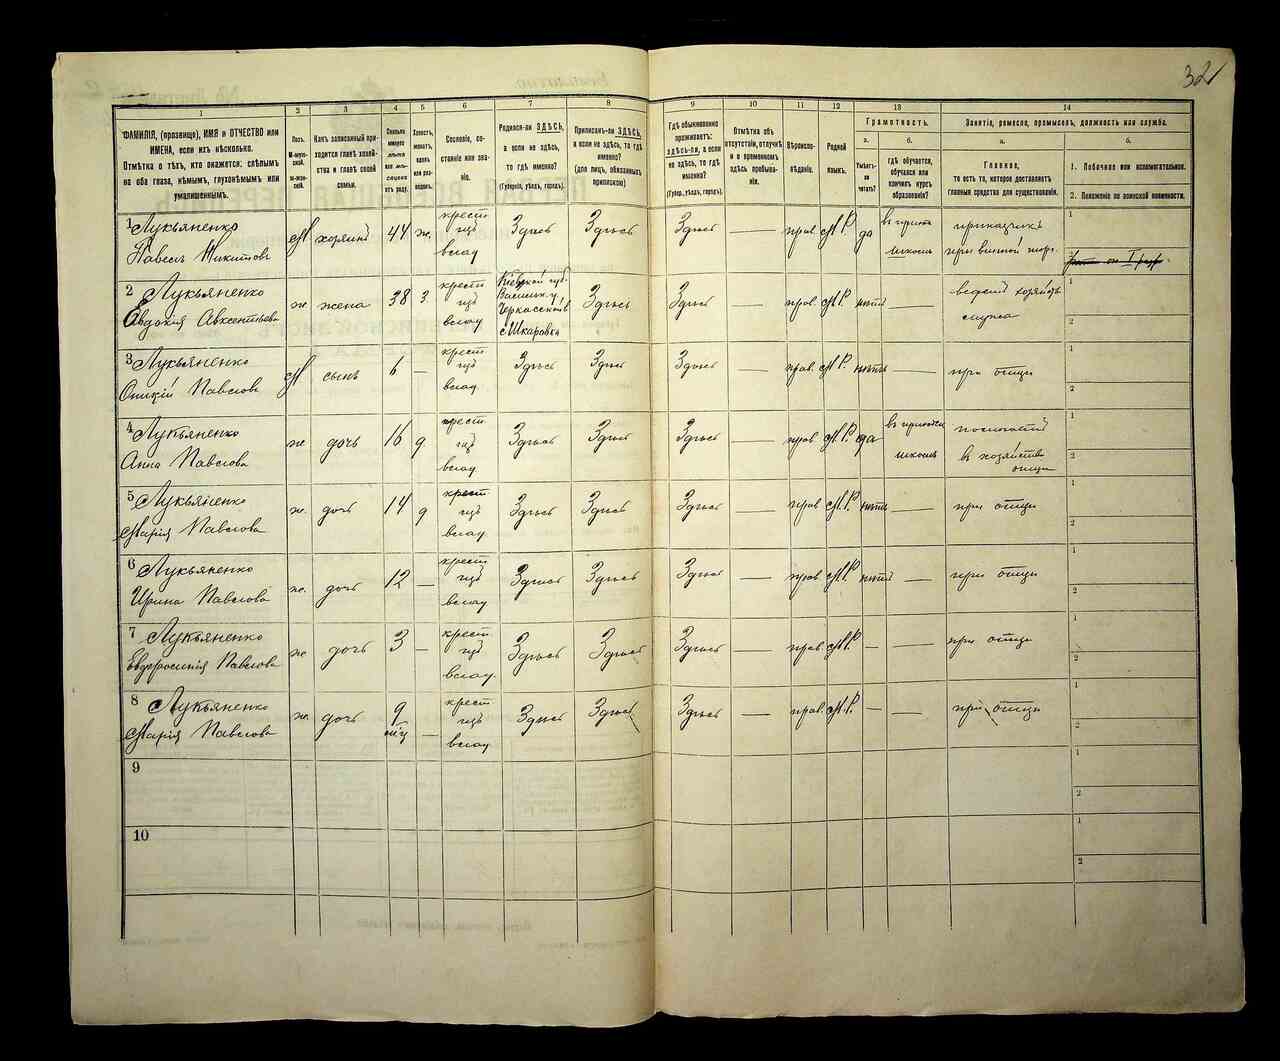 32
1 2 3 4 5 6 7 8 9 10 11 12 13 14
ФАМИЛІЯ, (прозвище), ИМЯ и ОТЧЕСТВО или
ИМЕНА, если ихъ нѣсколько.
Отмѣтка о тѣхъ, кто окажется: слѣпымъ
на оба глаза, нѣмымъ, глухонѣмымъ или
умалишеннымъ.
Полъ.
М-мужской.
Ж-женскій.
Какъ записанный приходится главѣ хозяйства и главѣ своей семьи.
Сколько минуло лѣтъ или мѣсяцевъ отъ роду.
Холостъ, женатъ, вдовъ или разведенъ.
Сословіе, состояніе или званіе.
Родился-ли ЗДѢСЬ,
а если не здѣсь,
то гдѣ именно?
(Губернія, уѣздъ, городъ).
Приписанъ-ли ЗДѢСЬ,
а если не здѣсь, то гдѣ
именно?
(для лицъ, обязанныхъ
припискою)
Гдѣ обыкновенно
проживаетъ:
здѣсь-ли, а если
не здѣсь, то гдѣ
именно?
(Губер., уѣздъ, городъ).
Отмѣтка объ
отсутствіи, отлучкѣ
и о временномъ
здѣсь пребываніи.
Вѣроисповѣданіе.
Родной
языкъ.
Грамотность.
а.
Умѣетъ-ли
читать?
б.
гдѣ обучается,
обучался или
кончилъ курсъ
образованія?
Занятіе, ремесло, промыселъ, должность или служба.
а.
Главное,
то есть то, которое доставляетъ
главныя средства для существованія.
б.
1. Побочное или вспомогательное.
2. Положеніе по воинской повинности.
1 Лукьяненко
Павелъ Никитовъ
М хозяинъ 44 ж. крест. изъ влад Здѣсь Здѣсь Здѣсь — прав. М.Р. да въ прих школѣ приказчикъ при винной торг. 1
2 Лукьяненко
Евдокія Авксентьева
ж жена 38 З крест изъ влад Кіевской губ. Васильк. у. с Шкаровка Здѣсь Здѣсь — прав. М.Р. нѣтъ — 1 2
3 Лукьяненко
Павловъ
М сынъ 6 — крест изъ влад. Здѣсь Здѣсь Здѣсь — прав. М.Р. нѣтъ — при отцѣ 1 2
4 Лукьяненко
Анна Павлова
ж дочь 16 д крест изъ влад. Здѣсь Здѣсь Здѣсь — прав М.Р. да въ школѣ въ хозяйствѣ отца 1 2
5 Лукьяненко
Марія Павлова
ж. дочь 14 д крест изъ влад. Здѣсь Здѣсь Здѣсь — прав М.Р. нѣтъ — при отцѣ 1 2
6 Лукьяненко
Ирина Павлова
ж. дочь 12 — крест. изъ влад Здѣсь Здѣсь Здѣсь — прав М.Р. нѣтъ — при отцѣ 1 2
7 Лукьяненко
Евфросинія Павлова
ж дочь 3 — крест. изъ влад. Здѣсь Здѣсь Здѣсь — прав. М.Р. — — при отцѣ 1 2
8 Лукьяненко
Марія Павлова
ж. дочь 9 мѣс — крест изъ влад. Здѣсь Здѣсь Здѣсь — прав. М.Р. — — при отцѣ 1 2
9 1 2
10 1 2